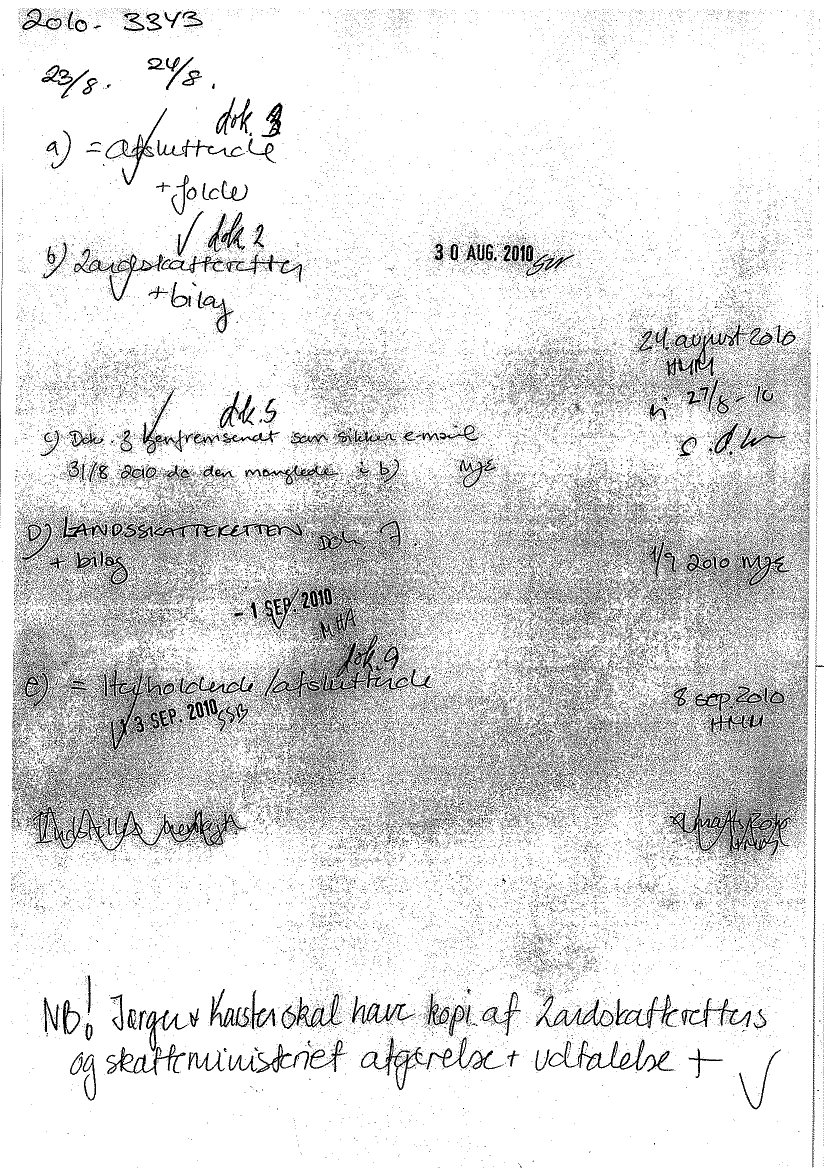 2010- 3343
23/8. 24/8.
dok. 3
a) = afsluttende
+ folde
dok. 2
b) Landsskatteretten
+ bilag
30 AUG. 2010
24 august 2010
HMM
27/8 - 10
dok. 5
c) Dok. 3 genfremsendt som sikker e-mail
31/8 2010 da den manglede i b) MJE
D) LANDSSKATTERETTEN DOK 7.
+ bilag
1/9 2010 MJE
- 1 SEP. 2010
MHA
dok. 9
e) = Henholdende /afsluttende
8 sep 2010
HMM
13 SEP. 2010 SSB
NB! Jørgen + Karsten skal have kopi af Landsskatterettens
og skatteministeriet afgørelse + udtalelse +